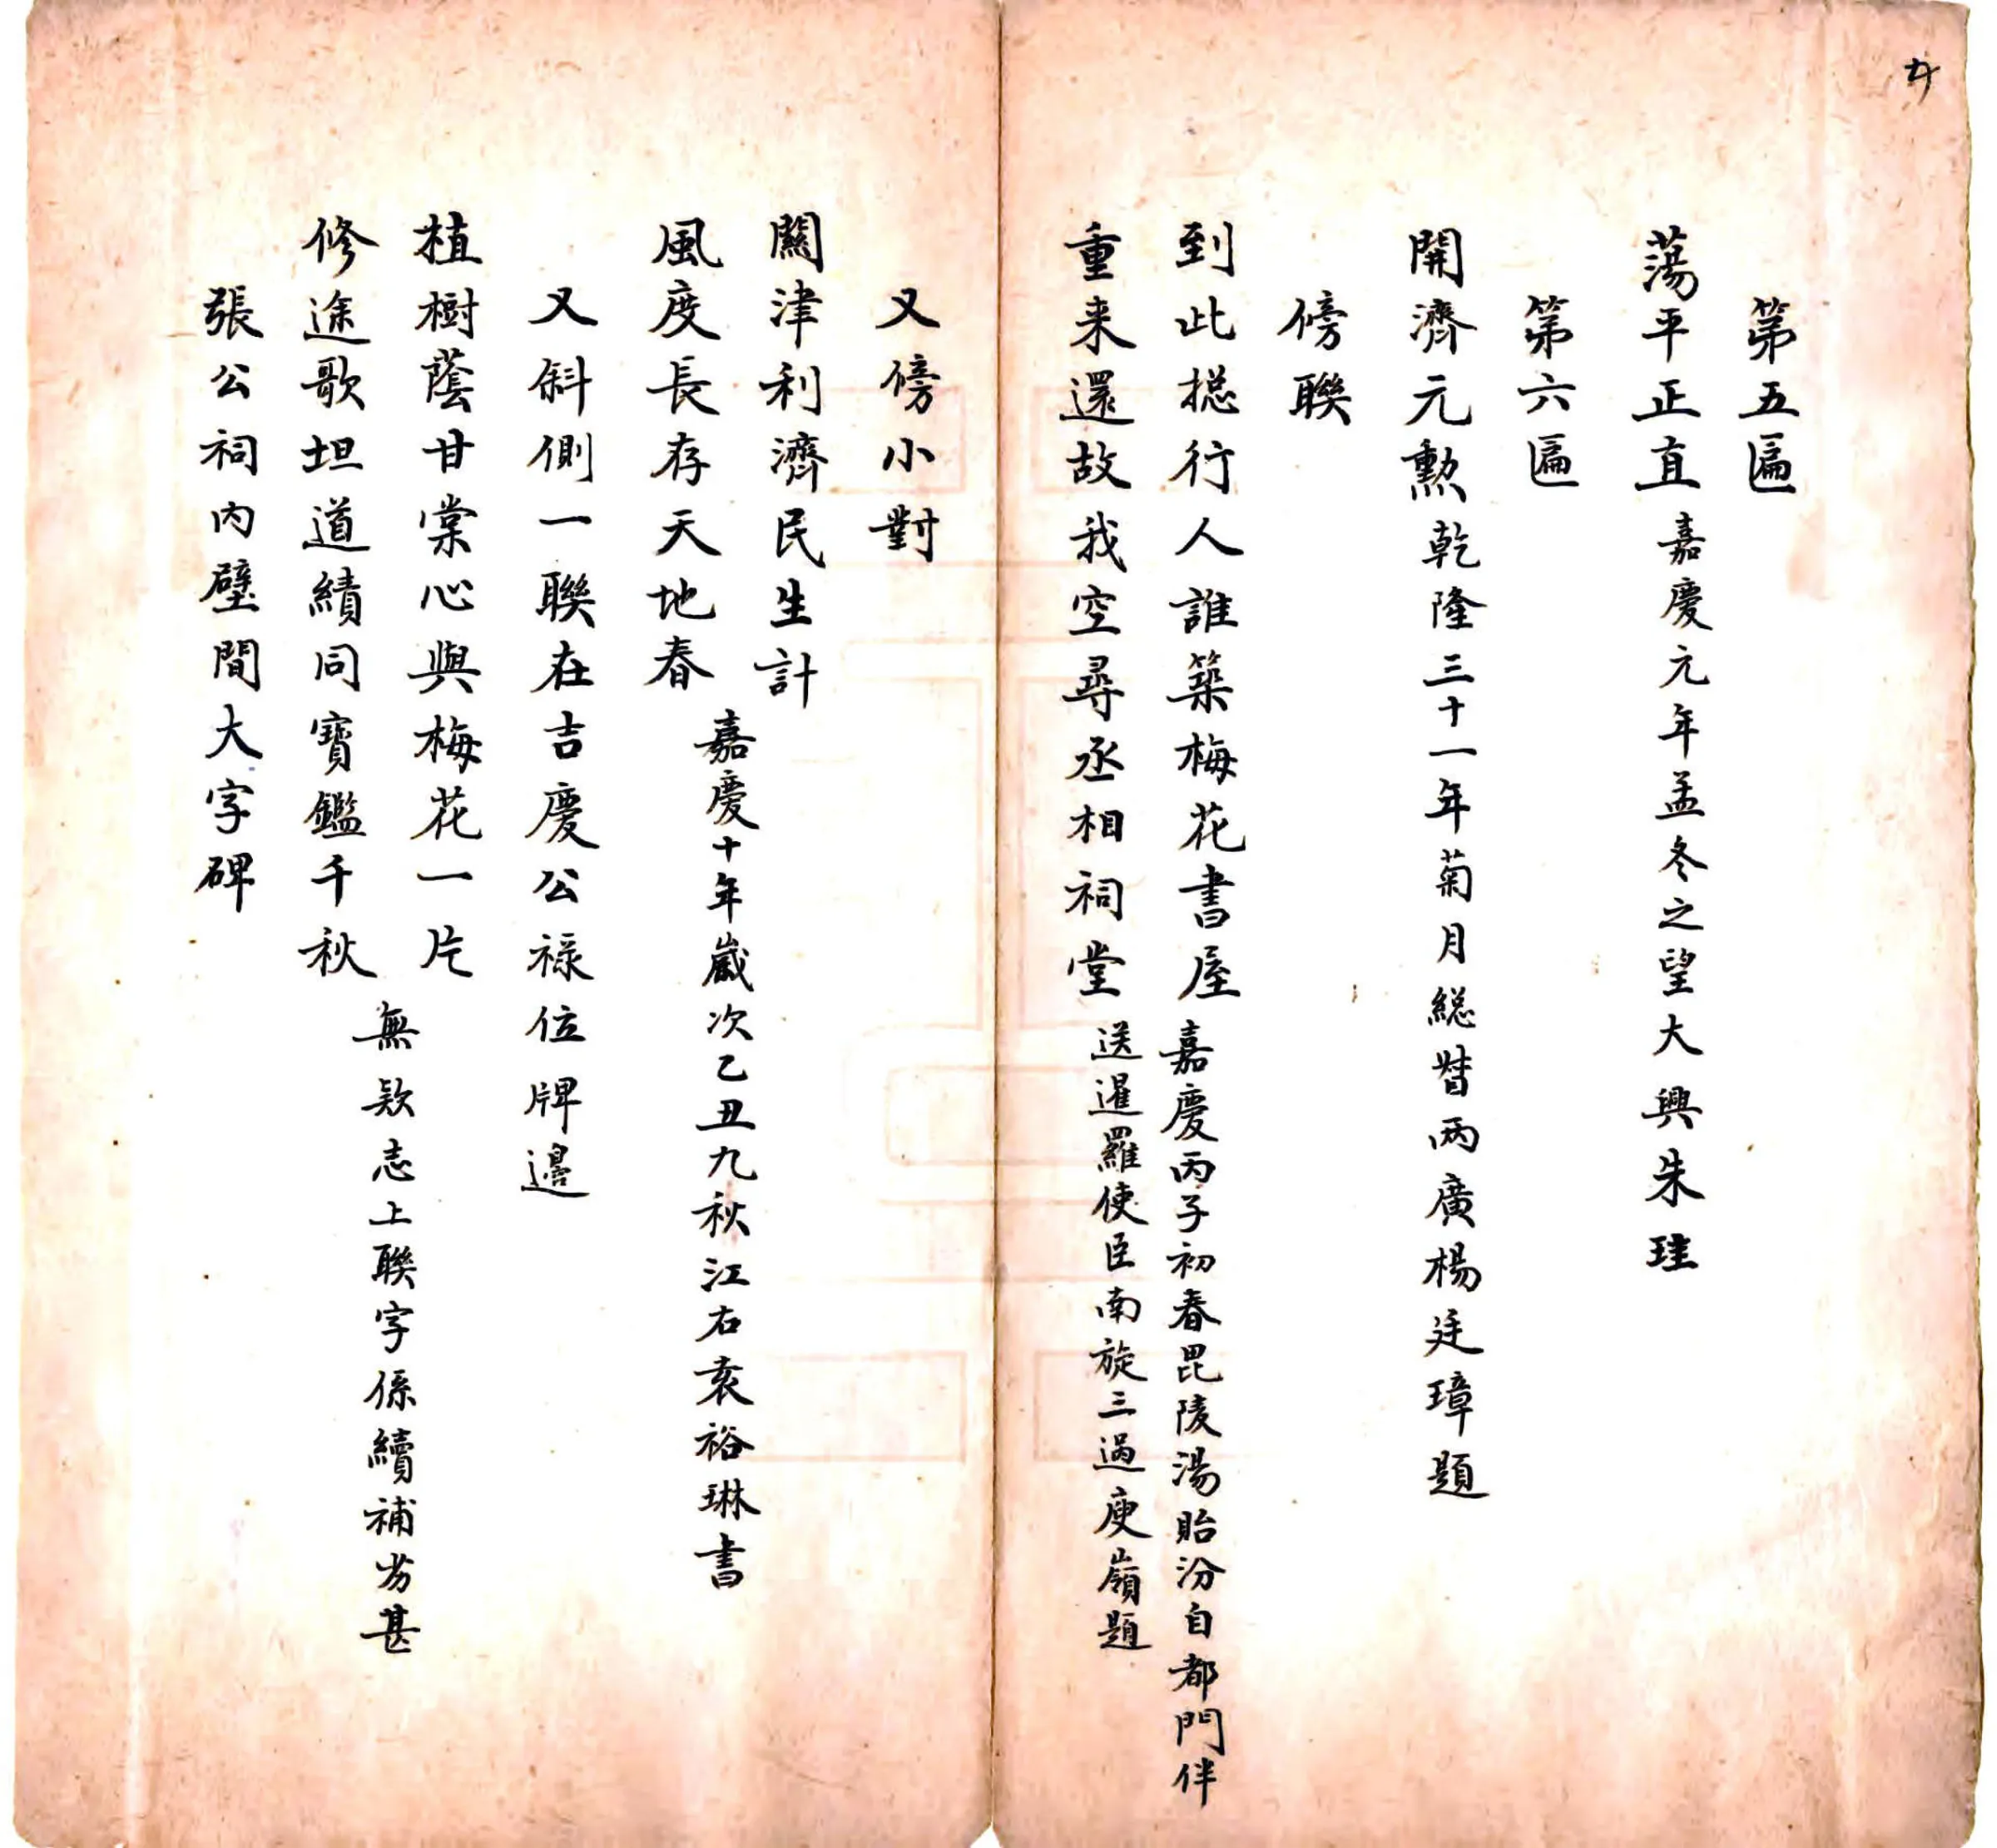 第五匾
蕩平正直嘉慶元年孟冬之望大興朱珪
第六匾
開濟元勲乾隆三十一年菊月総督兩廣楊廷璋題
傍聯
到此捴行人誰築梅花書屋嘉慶丙子初春毘陵湯貽汾自都門伴
重来還故我空尋丞相祠堂送暹羅使臣南旋三過庾嶺題
又傍小對
關津利濟民生計
風度長存天地春
嘉慶十年歲次乙丑九秋江右袁裕琳書
又斜側一聯在吉慶公祿位牌邊
植樹蔭甘棠心與梅花一片
修途歌坦道績同寶鑑千秋
無欵志上聯字係續補劣甚
張公祠內壁間大字碑